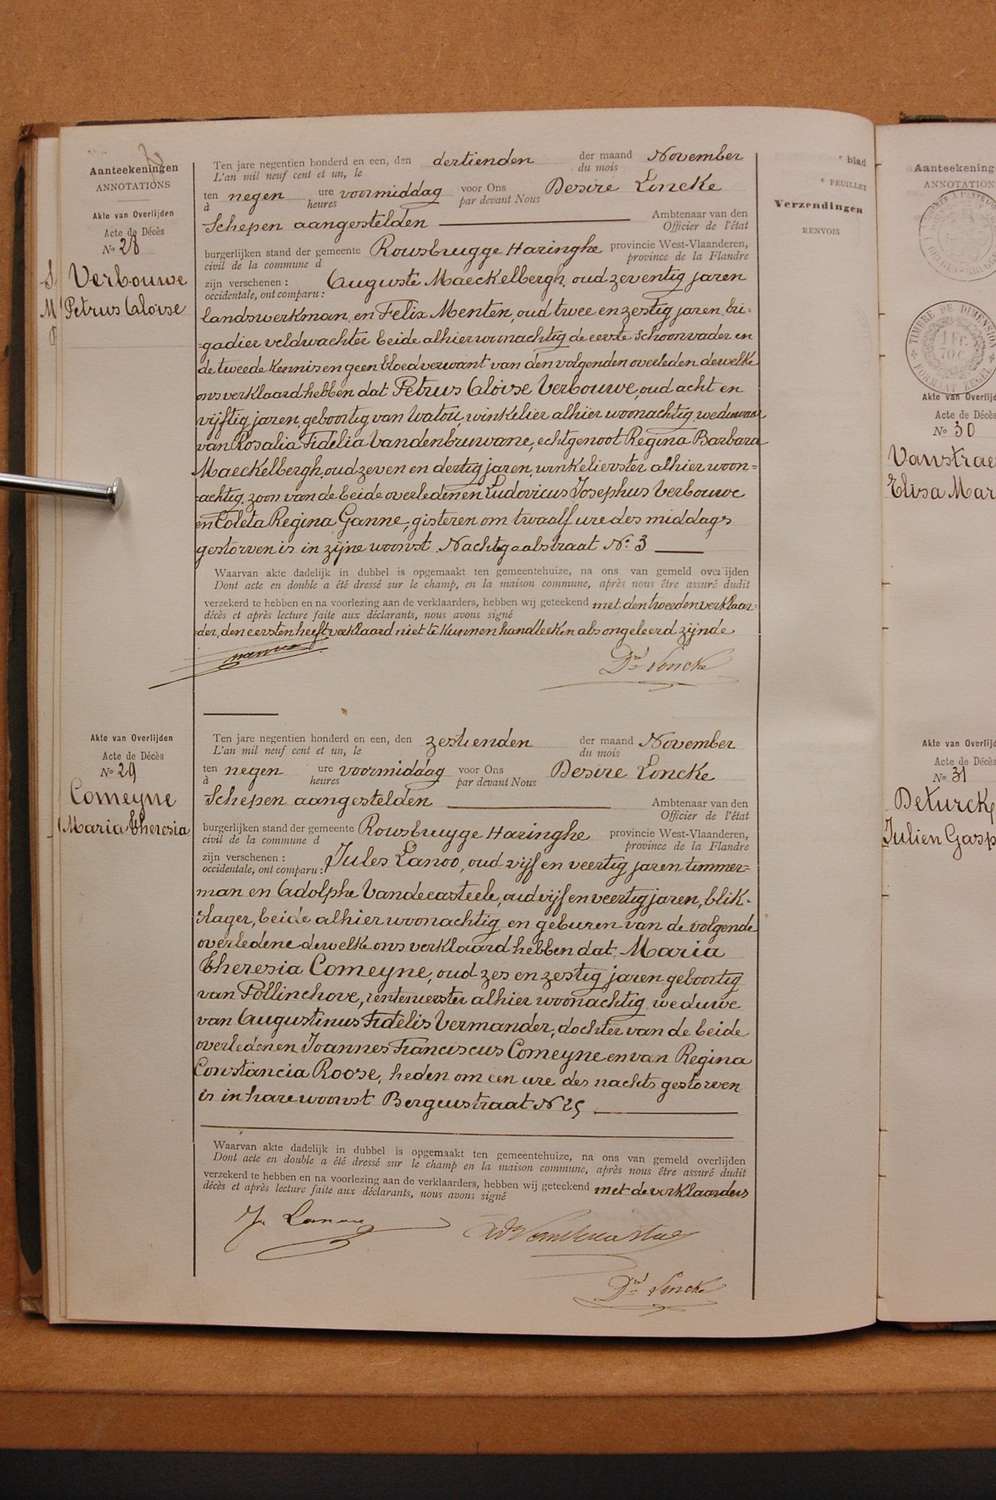 Aanteekeningen
ANNOTATIONS
Akte van Overlijden
Acte de Décès
No 28
Verbouwe
Petrus Aloïse
Ten jare negentien honderd en een, den dertienden der maand November
L'an mil neuf cent et un, le du mois
ten negen ure voormiddag voor Ons Desire Lincke
à heures par devant Nous
Schepen aangestelden Ambtenaar van den
Officier de l'état
burgerlijken stand der gemeente Rousbrugge Haringhe provincie West-Vlaanderen,
civil de la commune d province de la Flandre
zijn verschenen : Auguste Maeckelbergh, oud zeventig jaren
occidentale, ont comparu :
landswerkman, en Felix Menten, oud twee en zestig jaren bri-
-gadier veldwachter beide alhier woonachtig de eerste schoonvader en
de tweede kennis en geen bloedverwant van den volgenden overleden dewelke
ons verklaard hebben dat Petrus Aloïse Verbouwe, oud acht en
vijftig jaren, geboortig van Watou, winkelier alhier woonachtig weduwaar
van Rosalia Fidelia Vandenbruwane, echtgenoot Regina Barbara
Maeckelbergh, oud zeven en dertig jaren, winkelierster alhier woon-
-achtig, zoon van de beide overledenen Ludovicus Josephus Verbouwe
en Coleta Regina Ganne, gisteren om twaalf ure des middags
gestorven is in zijne woonst Nachtgaalstraat No 3
Waarvan akte dadelijk in dubbel is opgemaakt ten gemeentehuize, na ons van gemeld overlijden
Dont acte en double a été dressé sur le champ, en la maison commune, après nous être assuré dudit
verzekerd te hebben en na voorlezing aan de verklaarders, hebben wij geteekend met den tweeden verklaar-
décès et après lecture faite aux déclarants, nous avons signé
der, den eersten heeft verklaard niet te kunnen handteeken als ongeleerd zijnde
Dré Lincke
Akte van Overlijden
Acte de Décès
No 29
Comeyne
Maria Theresia
Ten jare negentien honderd en een, den zestienden der maand November
L'an mil neuf cent et un, le du mois
ten negen ure voormiddag voor Ons Desire Lincke
à heures par devant Nous
Schepen aangestelden Ambtenaar van den
Officier de l'état
burgerlijken stand der gemeente Rousbrugge Haringhe provincie West-Vlaanderen,
civil de la commune d province de la Flandre
zijn verschenen : Jules Lanoo, oud vijf en veertig jaren timmer-
occidentale, ont comparu :
man en Adolphe Vandecasteele, oud vijf en veertig jaren, blik-
-slager, beide alhier woonachtig en geburen van de volgende
overledene dewelke ons verklaard hebben dat Maria
Theresia Comeyne, oud zes en zestig jaren geboortig
van Pollinchove, rentenierster alhier woonachtig, weduwe
van Augustinus Fidelis Vermander, dochter van de beide
overledenen Joannes Franciscus Comeyne en van Regina
Constancia Roose, heden om een ure des nachts gestorven
is in hare woonst Bergenstraat No 25
Waarvan akte dadelijk in dubbel is opgemaakt ten gemeentehuize, na ons van gemeld overlijden
Dont acte en double a été dressé sur le champ, en la maison commune, après nous être assuré dudit
verzekerd te hebben en na voorlezing aan de verklaarders, hebben wij geteekend met de verklaarders
décès et après lecture faite aux déclarants, nous avons signé
Js Lanoo
Ads Vandecasteele
Dré Lincke
blad
FEUILLET
Verzendingen
RENVOIS
Aanteekening
ANNOTATION
TIMBRE DE DIMENSION
1 FR. 70 C.
FORMAAT ZEGEL
Akte van Overlijd
Acte de Décès
No 30
Vanstrae
Elisa Mar
Akte van Overlijd
Acte de Décès
No 31
Deturck
Julien Gasp